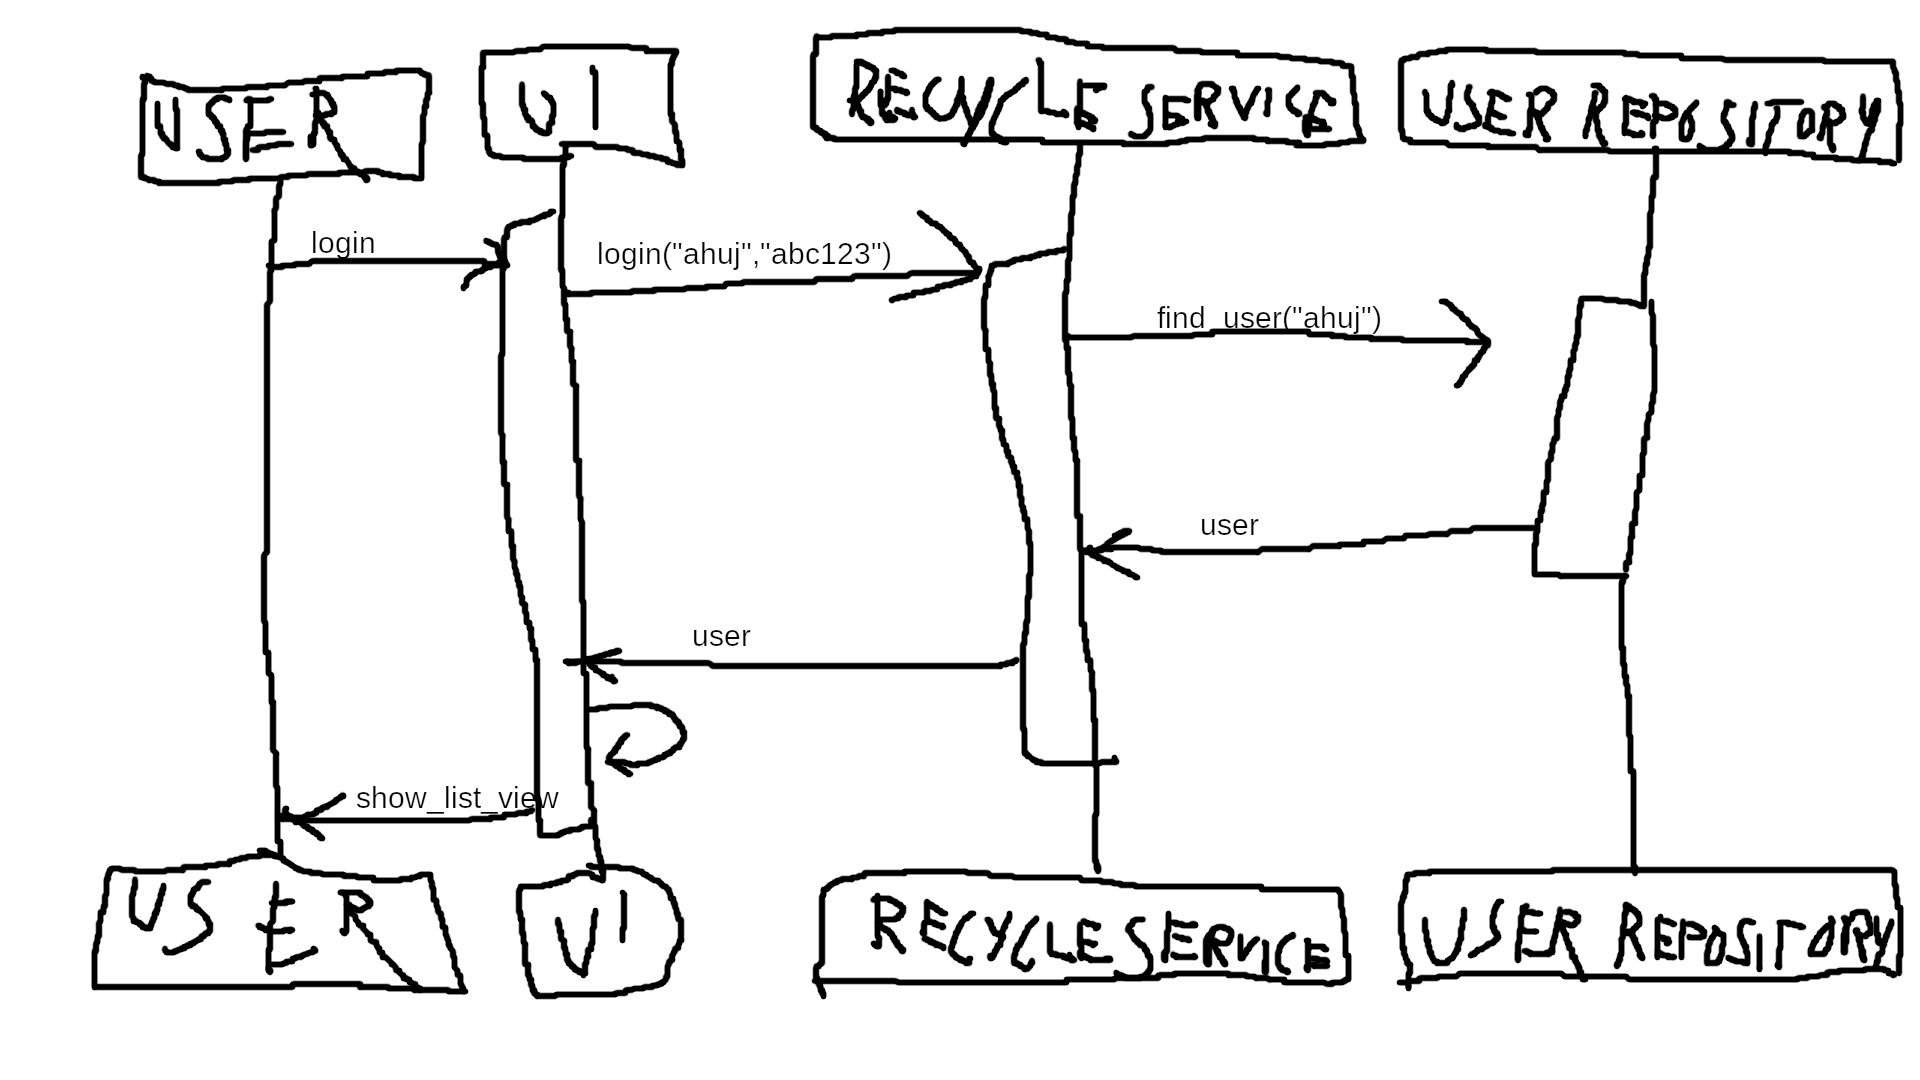 USER
UI
RECYCLE SERVICE
USER REPOSITORY
login
login("ahuj","abc123")
find_user("ahuj")
user
user
show_list_view
USER
UI
RECYCLE SERVICE
USER REPOSITORY